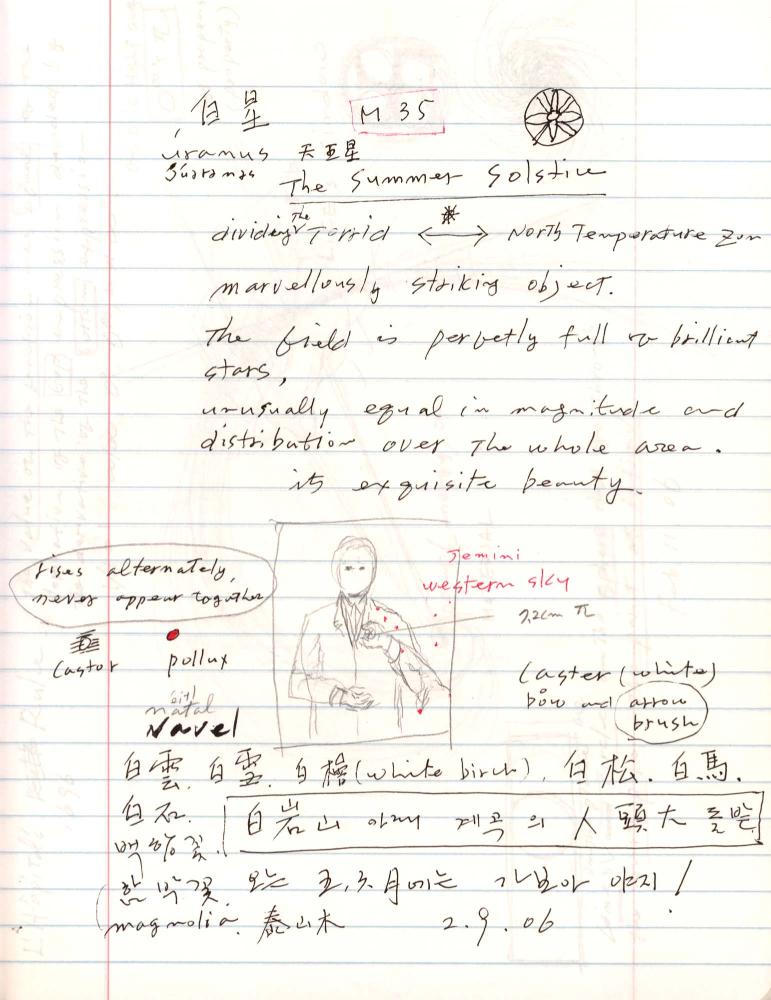 白星
M 35
uranus 天王星
The Summer Solstice
dividing The Torrid ↔ North Temperature Zon
marvellously striking object.
The field is perfectly full of brilliant
stars,
unusually equal in magnitude and
distribution over The whole area.
its exquisite beauty.
rises alternately,
never appear together
Castor
pollux
natal
Navel
Gemini
western sky
7.2cm π
Caster (white)
bow and arrow
brush
白雲. 白雪. 白檜 (white birch), 白松. 白馬.
白石.
白岩山 아래 계곡의 人頭大 돌밭
백합꽃.
함박꽃. 오는 五,六月에는 가보아야지!
magnolia. 泰山木 2.9.06